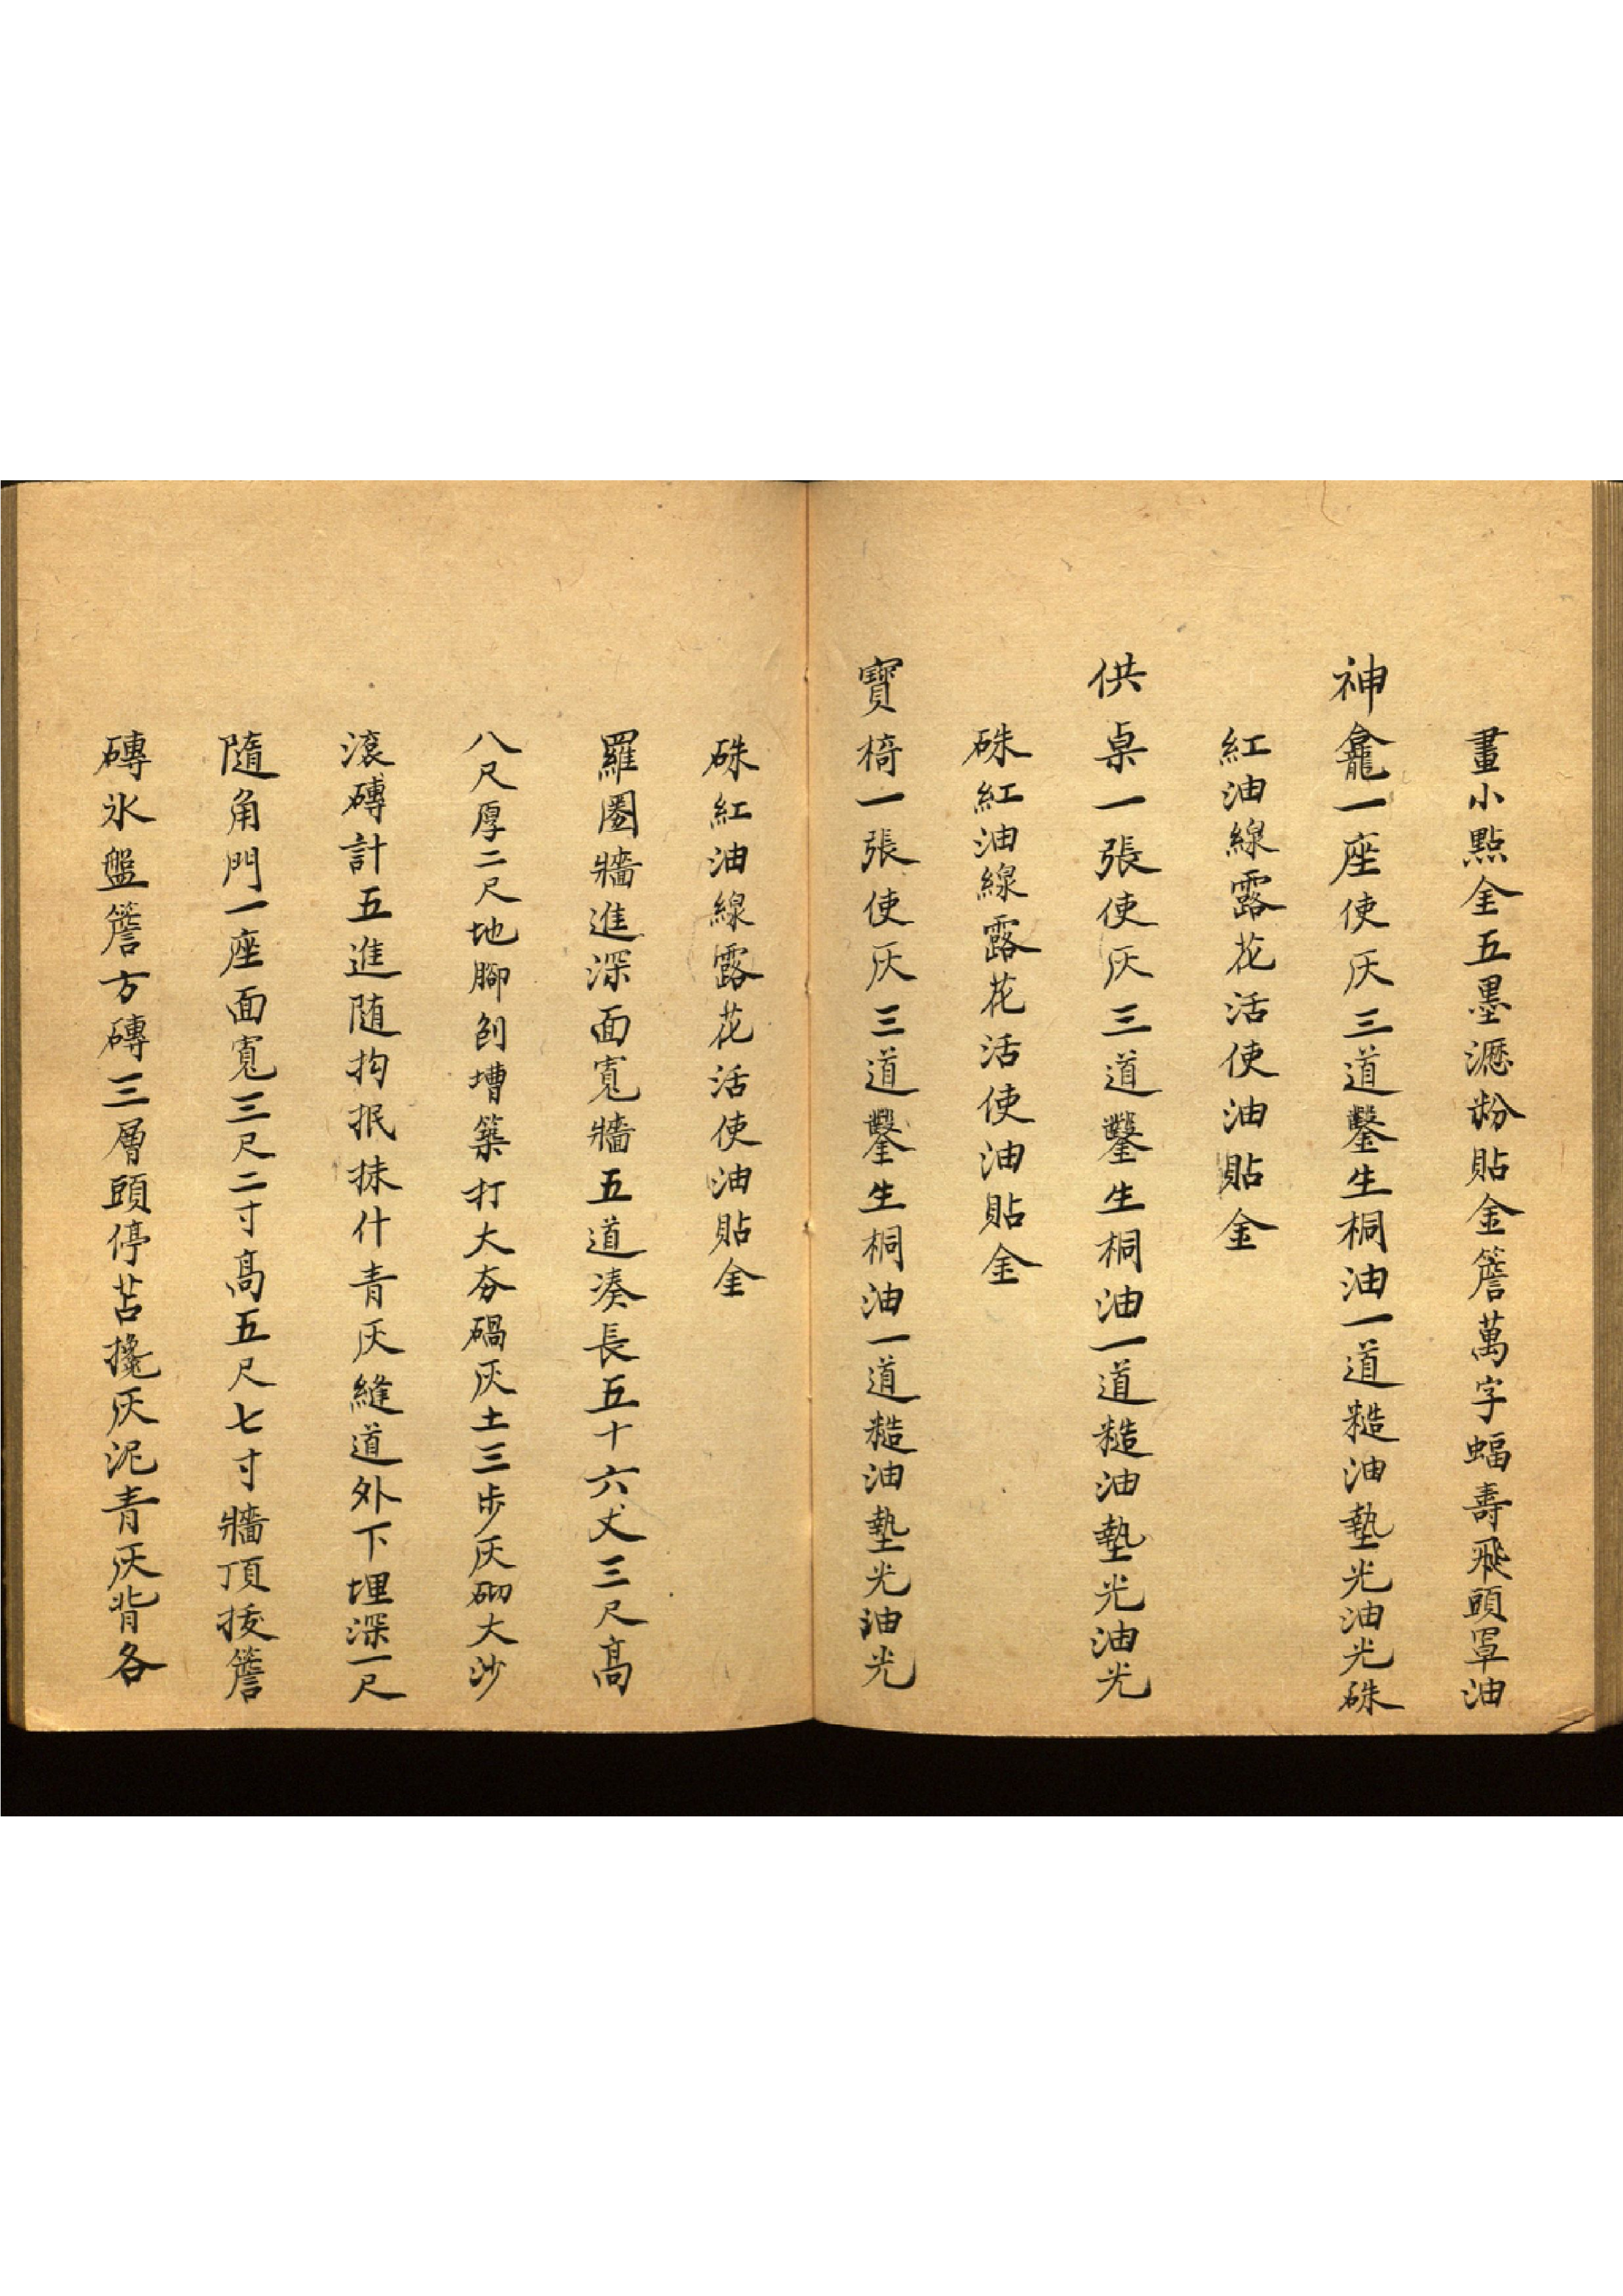 畫小點金五墨瀝粉貼金簷萬字蝠壽飛頭罩油
神龕一座使灰三道鑿生桐油一道糙油墊光油光硃
紅油線露花活使油貼金
供桌一張使灰三道鑿生桐油一道糙油墊光油光
硃紅油線露花活使油貼金
寶椅一張使灰三道鑿生桐油一道糙油墊光油光
硃紅油線露花活使油貼金
羅圈牆進深面寬牆五道湊長五十六丈三尺高
八尺厚二尺地腳刨槽築打大夯碢灰土三步灰砌大沙
滾磚計五進隨抅抿抹什青灰縫道外下埋深一尺
隨角門一座面寬三尺二寸高五尺七寸牆頂拔簷
磚氷盤簷方磚三層頭停苫攙灰泥青灰背各